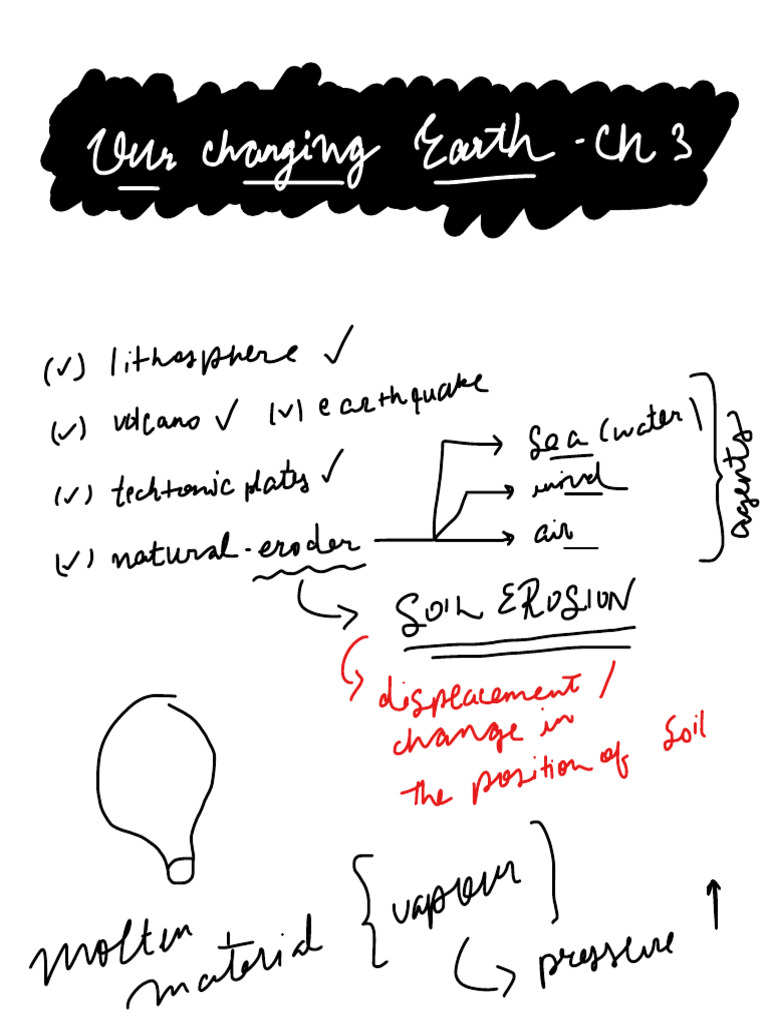 Our changing Earth - Ch 3
(✓) lithosphere ✓
(✓) volcano ✓ (✓) earthquake
(✓) techtonic plates ✓
(✓) natural-eroder
sea (water)
wind
air
agents
SOIL EROSION
displacement /
change in
the position of soil
molten
material
{vapour}
pressure ↑